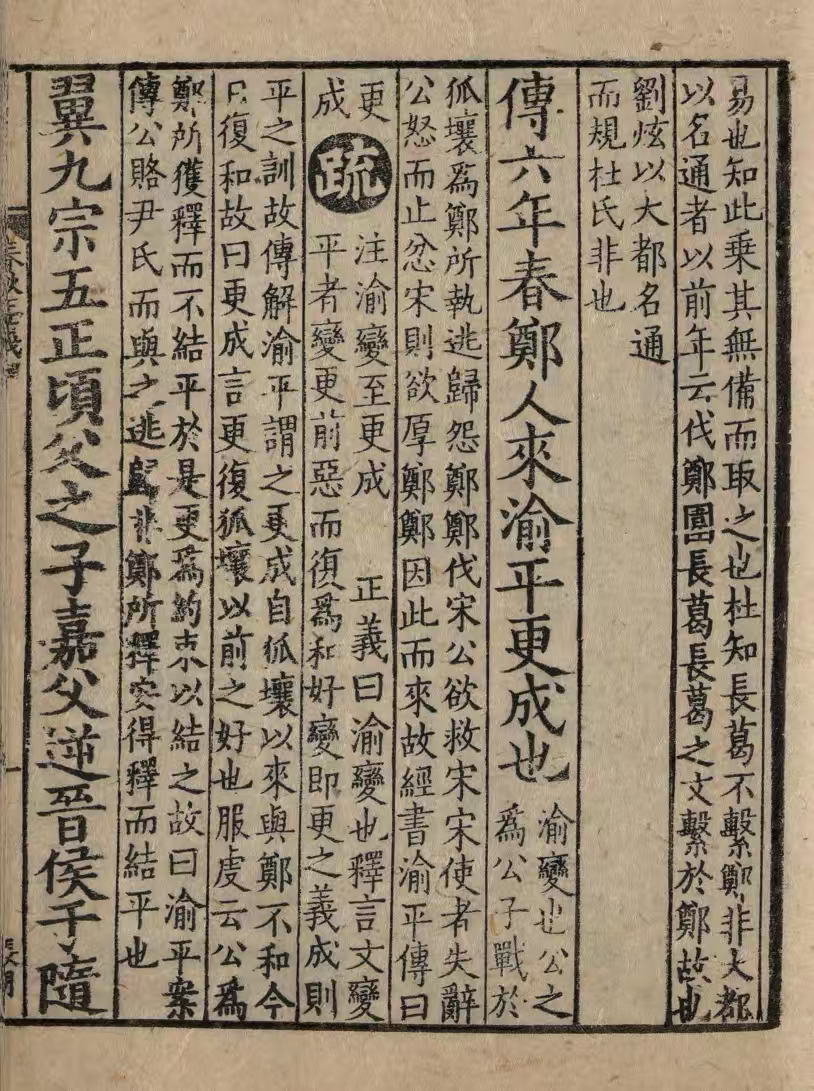 易也知此乗其無備而取之也杜知長葛不繫鄭非大都
以名通者以前年云伐鄭圍長葛長葛之文繫於鄭故也
劉炫以大都名通
而規杜氏非也
傳六年春鄭人來渝平更成也
渝變也公之
爲公子戰於
狐壤爲鄭所執逃歸怨鄭鄭伐宋公欲救宋宋使者失辭
公怒而止忿宋則欲厚鄭鄭因此而來故經書渝平傳曰
更
成
疏
注渝變至更成 正義曰渝變也釋言文變
平者變更前惡而復爲和好變即更之義成則
平之訓故傳解渝平謂之更成自狐壤以來與鄭不和今
日復和故曰更成言更復狐壤以前之好也服虔云公爲
鄭所獲釋而不結平於是更爲約束以結之故曰渝平案
傳公賂尹氏而與之逃歸非鄭所釋安得釋而結平也
翼九宗五正頃父之子嘉父逆晉侯于隨
春秋正義